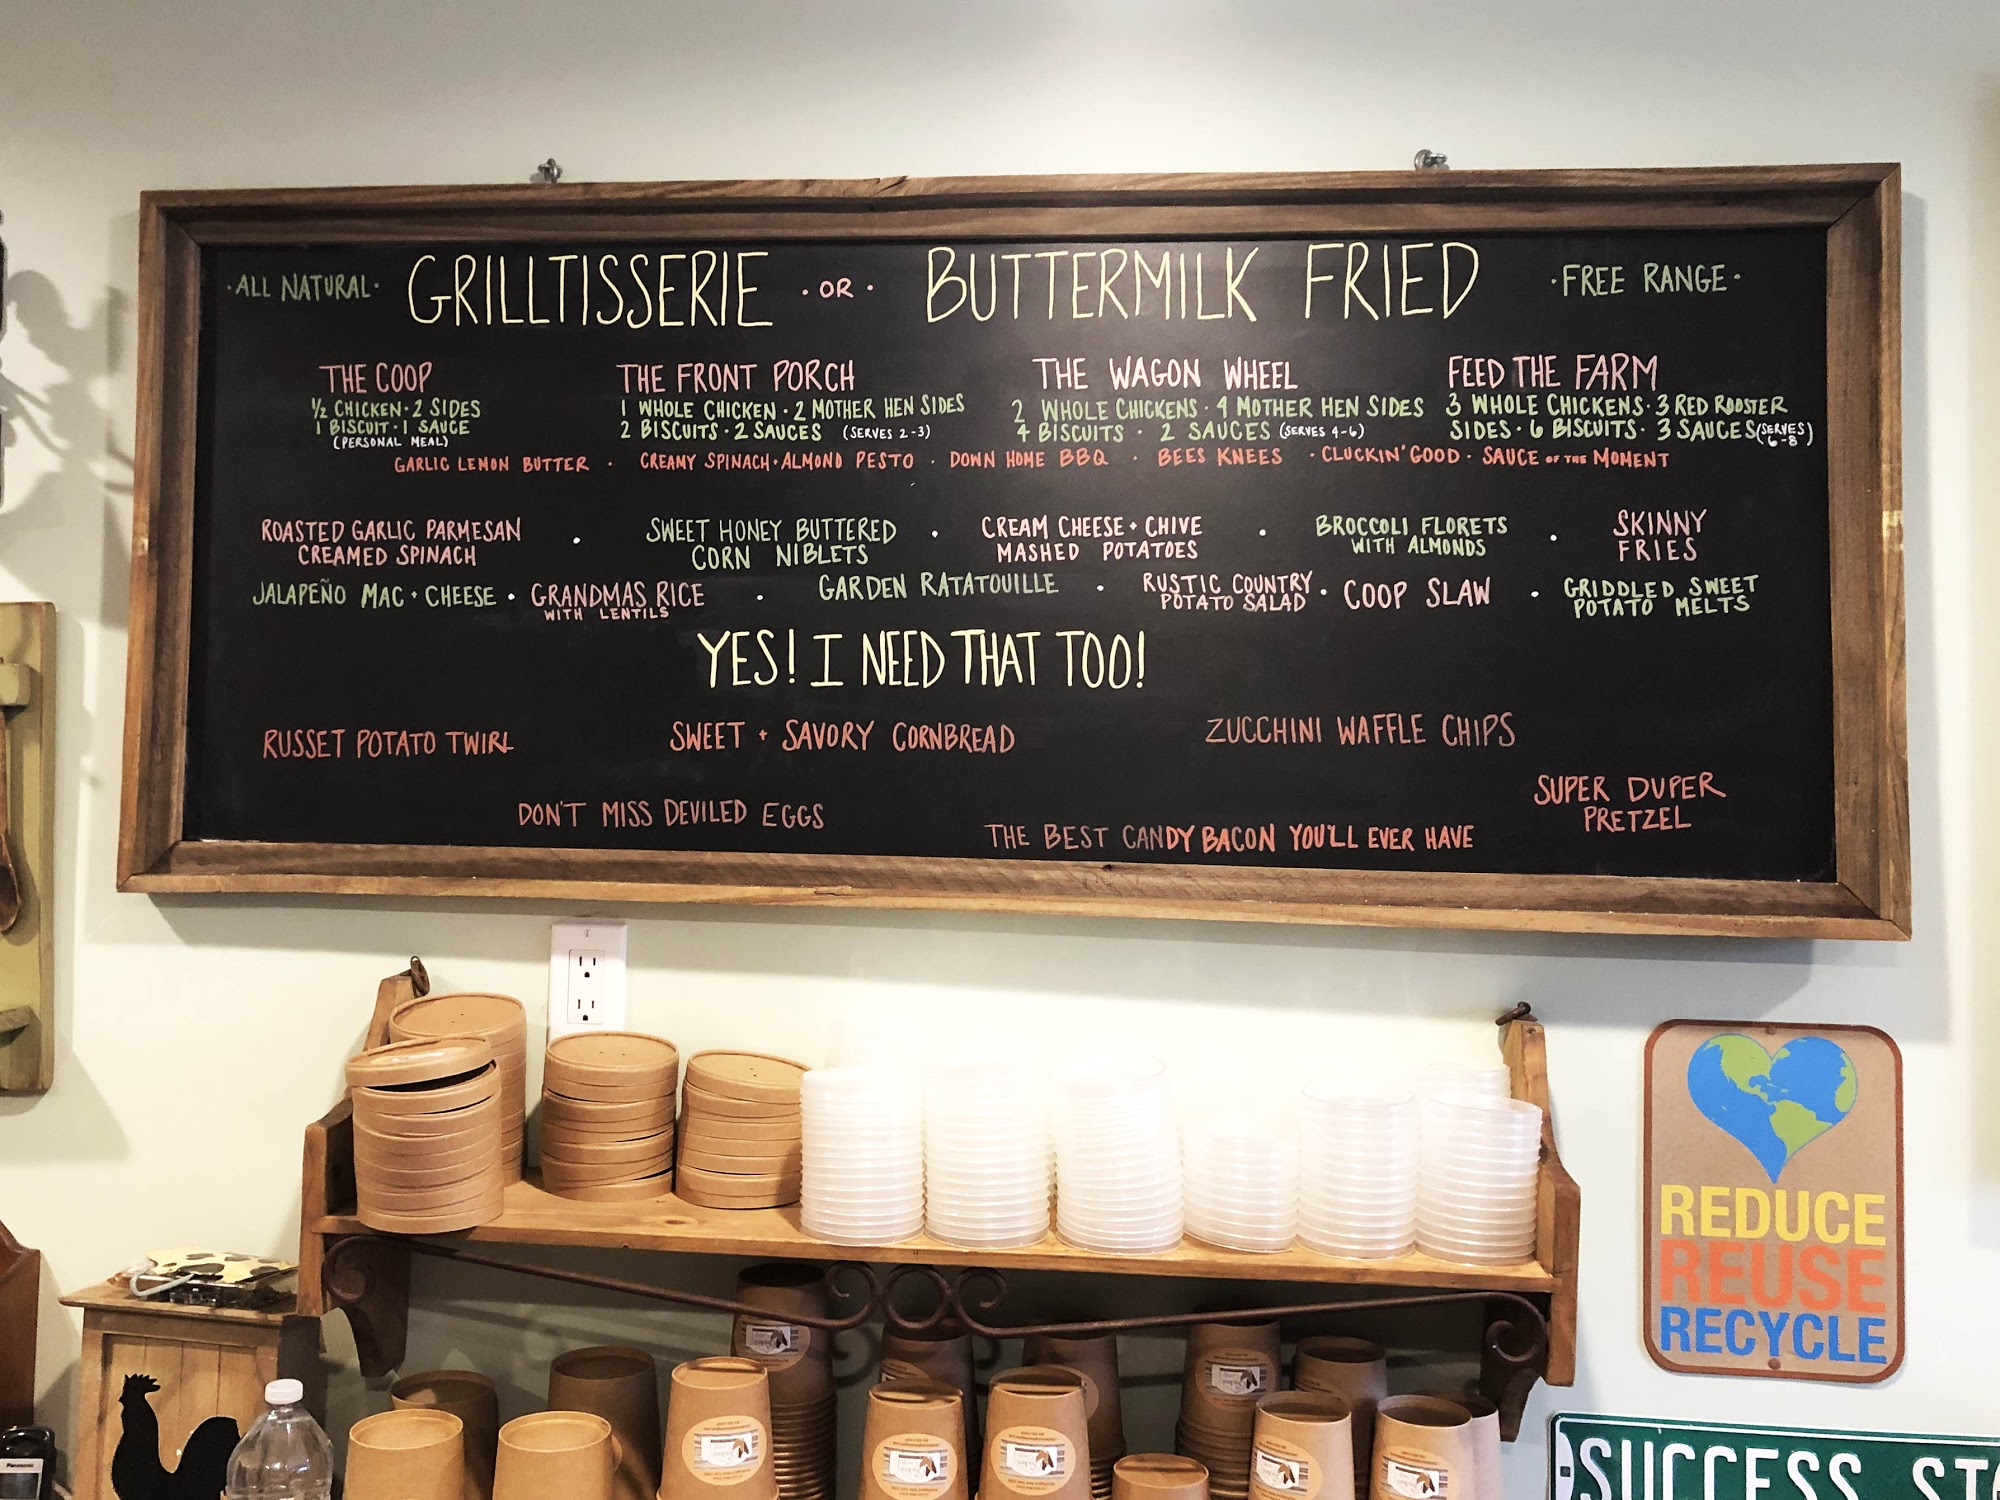 ·ALL NATURAL· GRILLTISSERIE ·OR· BUTTERMILK FRIED ·FREE RANGE·
THE COOP
½ CHICKEN·2 SIDES
1 BISCUIT·1 SAUCE
(PERSONAL MEAL)
THE FRONT PORCH
1 WHOLE CHICKEN·2 MOTHER HEN SIDES
2 BISCUITS·2 SAUCES (SERVES 2-3)
THE WAGON WHEEL
2 WHOLE CHICKENS·4 MOTHER HEN SIDES
4 BISCUITS · 2 SAUCES (SERVES 4-6)
FEED THE FARM
3 WHOLE CHICKENS·3 RED ROOSTER
SIDES·6 BISCUITS·3 SAUCES (SERVES 6-8)
GARLIC LEMON BUTTER · CREAMY SPINACH·ALMOND PESTO · DOWN HOME BBQ · BEES KNEES · CLUCKIN' GOOD · SAUCE OF THE MOMENT
ROASTED GARLIC PARMESAN CREAMED SPINACH · SWEET HONEY BUTTERED CORN NIBLETS · CREAM CHEESE + CHIVE MASHED POTATOES · BROCCOLI FLORETS WITH ALMONDS · SKINNY FRIES
JALAPEÑO MAC + CHEESE · GRANDMAS RICE WITH LENTILS · GARDEN RATATOUILLE · RUSTIC COUNTRY POTATO SALAD · COOP SLAW · GRIDDLED SWEET POTATO MELTS
YES! I NEED THAT TOO!
RUSSET POTATO TWIRL
SWEET + SAVORY CORNBREAD
ZUCCHINI WAFFLE CHIPS
DON'T MISS DEVILED EGGS
THE BEST CANDY BACON YOU'LL EVER HAVE
SUPER DUPER
PRETZEL
REDUCE
REUSE
RECYCLE
Panasonic
SUCCESS